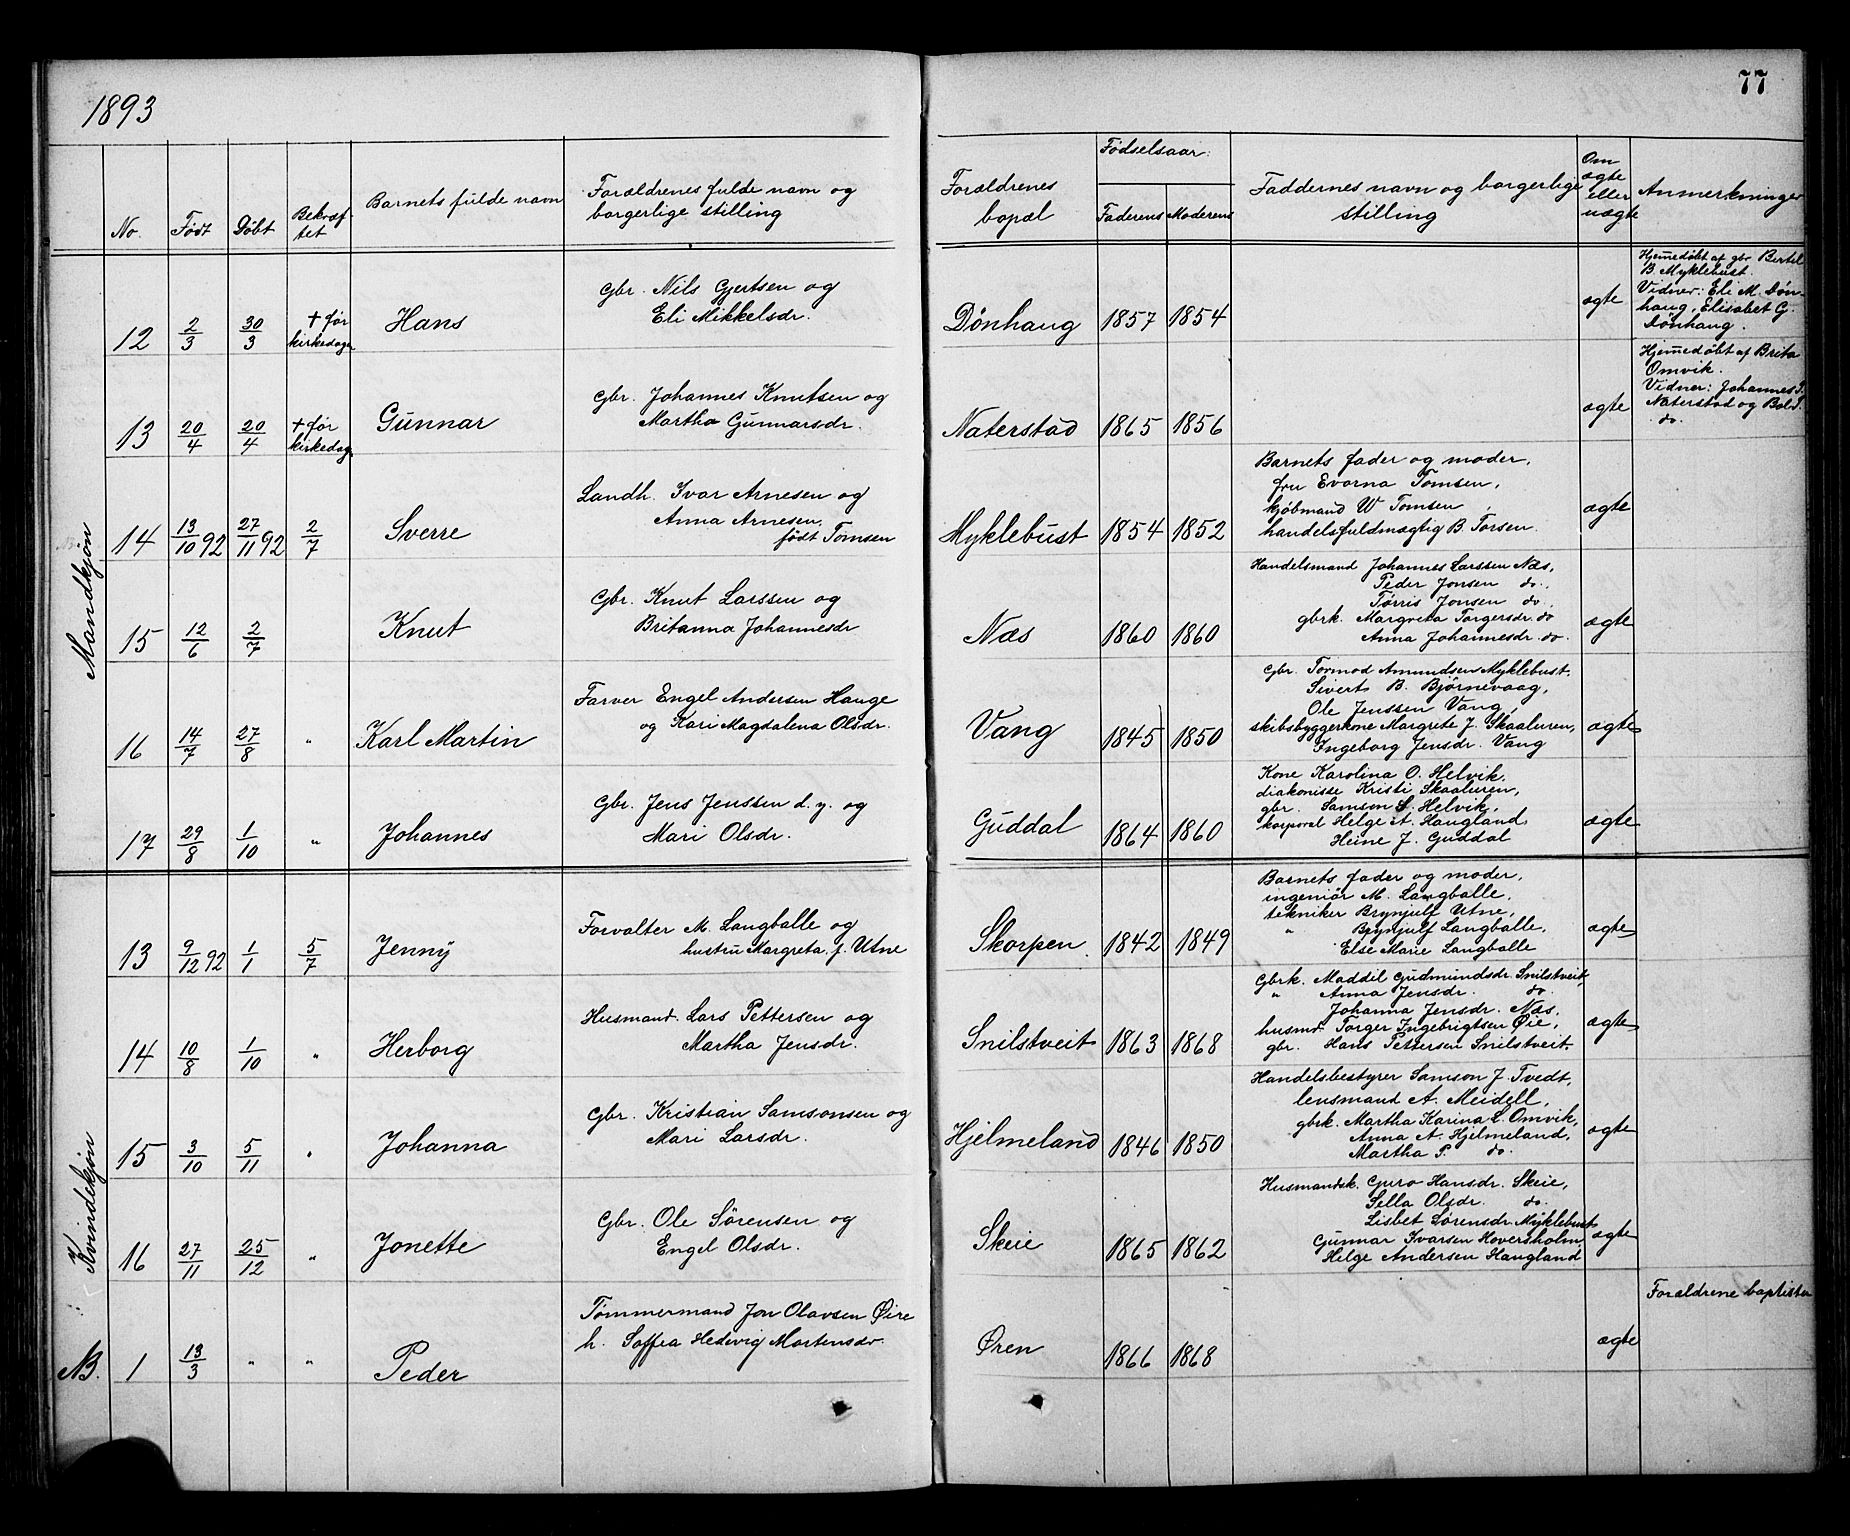 1893
77
No. Født Døbt Bekræf-
tet
Barnets fulde navn
Forældrenes fulde navn og
borgerlige stilling
Forældrenes
bopæl
Fødselsaar:
Faderens Moderens
Faddernes navn og borgerlige
stilling
Om
ægte
eller
uægte
Anmerkninger
Mandkjøn
12 2/3 30/3 + før
kirkedagn
Hans
Gbr. Nils Gjertsen og
Eli Mikkelsdr.
Dönhaug 1857 1854
ægte
Hjemmedöbt af gbr Bertil
B. Myklebust.
Vidner: Eli M. Døn-
haug, Elisabet G.
Dönhaug.
13 20/4 20/4 + før
kirkedag
Gunnar
Gbr. Johannes Knutsen og
Martha Gunnarsdr.
Naterstad 1865 1856
ægte
Hjemmedøbt af Brita
Omvik.
Vidner: Johannes T.
Naterstad og
do.
14 13/10 92 27/11 92 2/7
Sverre
Landh. Ivar Arnesen og
Anna Arnesen,
født Tomsen
Myklebust 1854 1852
Barnets fader og moder,
fru Evarna Tomsen,
kjøbmand W Tomsen
handelsfuldmægtig B. Torsen.
ægte
15 12/6 2/7
Knut
Gbr. Knut Larssen og
Britanna Johannesdr
Næs 1860 1860
Handelsmand Johannes Larssen Næs,
Peder Jonsen do.
Tørris Jonsen do.
gbrk. Margreta Torgersdr. do
Anna Johannesdr. do.
ægte
16 14/7 27/8 "
Karl Martin
Farver Engel Andersen Hauge
og Kari Magdalena Olsdr.
Vang 1845 1850
Gbr. Tormod Amundsen Myklebust.
Sivert B. Bjørnevaag,
Ole Jenssen Vang,
skibsbyggerkone Margrete J. Skaaluren,
Ingeborg Jensdr. Vang
ægte
17 29/8 1/10 "
Johannes
Gbr. Jens Jenssen d. y. og
Mari Olsdr.
Guddal 1864 1860
Kone Karolina O. Helvik,
diakonisse Kristi Skaaluren,
gbr. Samson S. Helvik,
korporal Helge A. Haugland,
Heine J. Guddal
ægte
Kvindekjøn
13 9/12 92 1/1 5/7
Jenny
Forvalter M. Langballe og
hustru Margreta f. Utne
Skorpen 1842 1849
Barnets fader og moder,
ingeniör M. Langballe,
tekniker Brynjulf Utne,
" Brynjulf Langballe,
Else Marie Langballe
ægte
14 10/8 1/10 "
Herborg
Husmand. Lars Pettersen og
Martha Jensdr.
Snilstveit 1863 1868
Gbrk. Maddil Gudmundsdr. Snilstveit,
" Anna Jensdr. do.
Johanna Jensdr. Næs,
husmd. Torger Ingebrigtsen Øie,
gbr. Hans Pettersen Snilstveit.
ægte
15 3/10 5/11 "
Johanna
Gbr. Kristian Samsonsen og
Mari Larsdr.
Hjelmeland 1846 1850
Handelsbestyrer Samson J. Tvedt,
lensmand A. Meidell,
gbrk. Martha Karina L. Omvik,
Anna A. Hjelmeland,
Martha P. do.
ægte
16 27/11 25/12 "
Jonette
Gbr. Ole Sörensen og
Engel Olsdr.
Skeie 1865 1862
Husmandsk. Guro Hansdr. Skeie,
Sella Olsdr. do.
Lisbet Sørensdr. Myklebust
Gunnar Ivarsen Hoversholm,
Helge Andersen Haugland
ægte
NB. 1 13/3 " "
Peder
Tömmermand Jon Olavsen Øire
h. Soffia Hedevig Martensdr.
Øren 1866 1868
ægte
Forældrene baptister